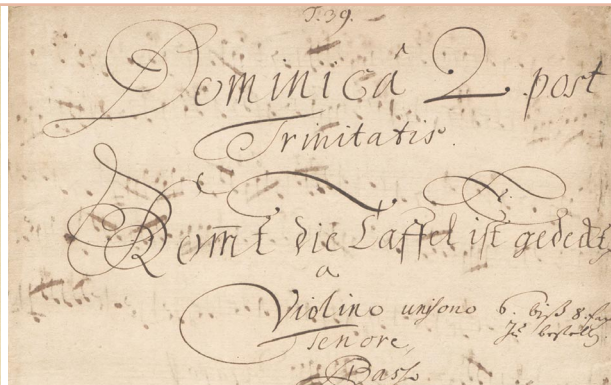 T. 39.
Dominicâ 2 post
Trinitatis.
Kom̅t die Taffel ist gedeckt
a
Violino unisono 6. biß 8.
zu bestellen
Tenore,
Basso